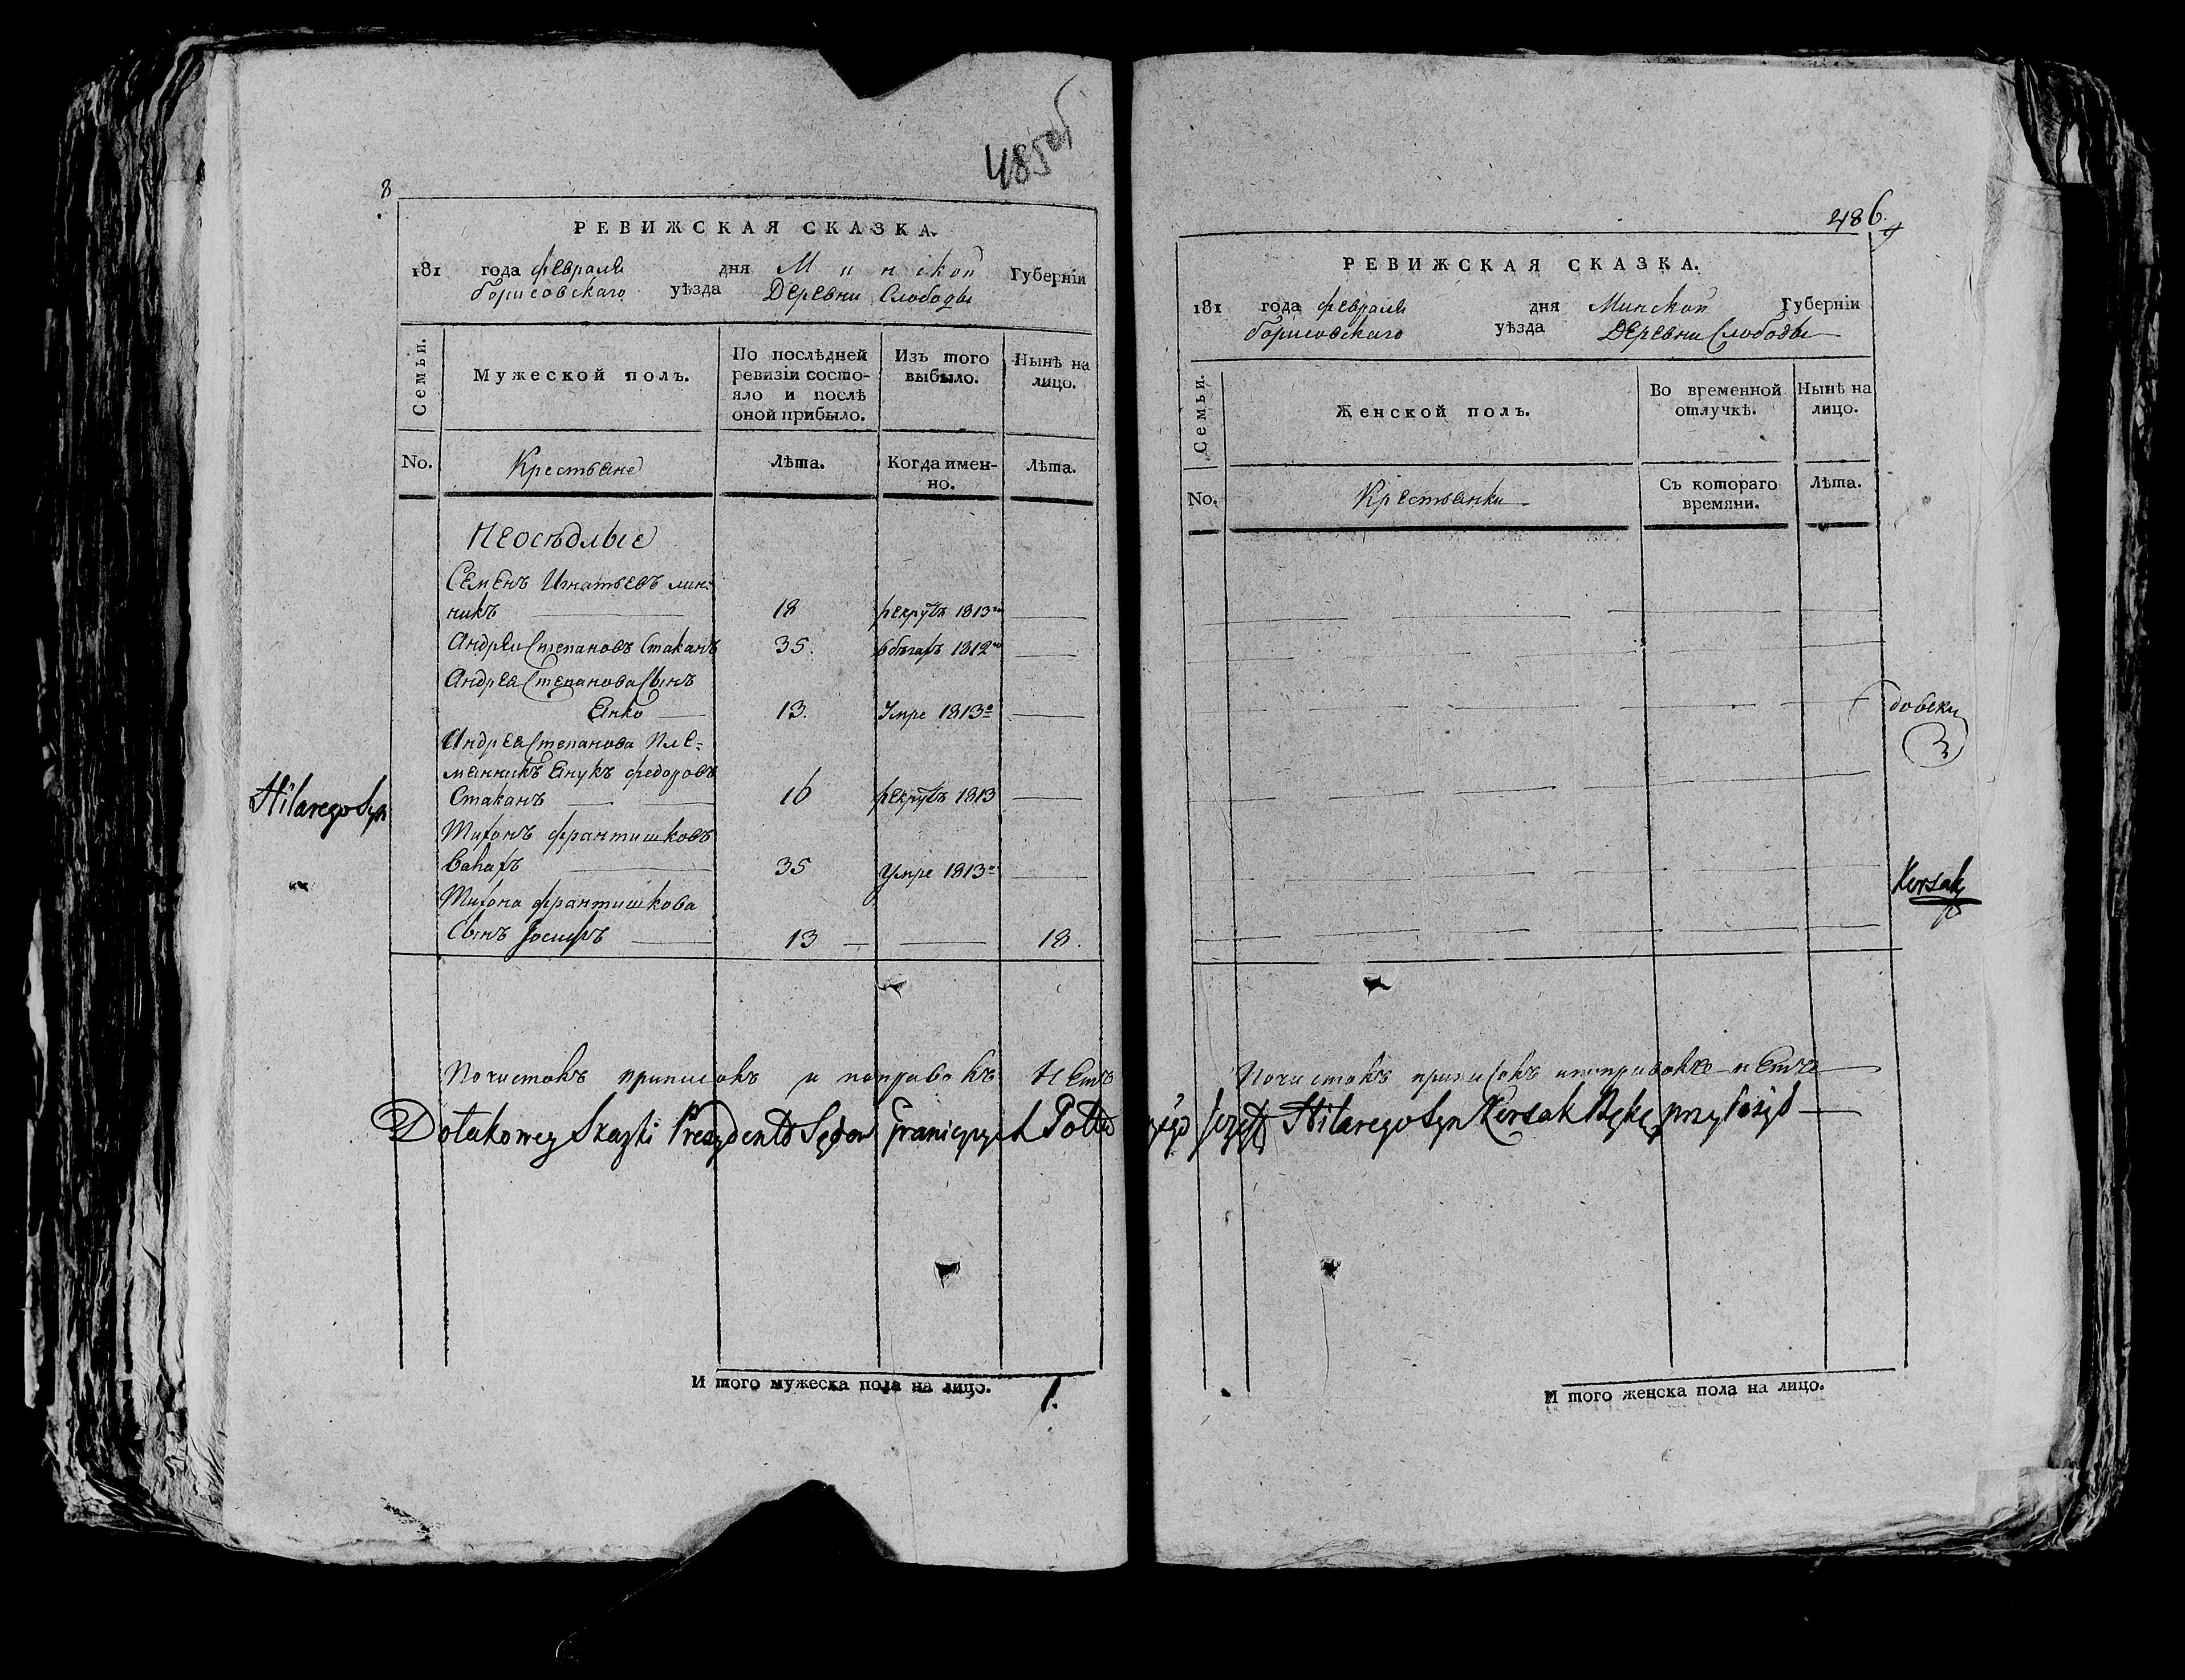 485 об
8
РЕВИЖСКАЯ СКАЗКА.
181 года февраля дня Минской Губерніи
Борисовскаго уѣзда Деревни Слободы
Семьи.
Мужеской полъ.
По послѣдней ревизіи состо-
яло и послѣ оной прибыло.
Изъ того выбыло.
Нынѣ на лицо.
No.
Крестьяне
Лѣта.
Когда имен-
но.
Лѣта.
Неосѣдлые
Семенъ Игнатьевъ лин-
никъ 18 рекрутъ 1813го
Андрей Степановъ Стаканъ 35. в бѣгахъ 1812го
Андрея Степанова Сынъ
Янко 13. Умре 1813о
Андрея Степанова Пле-
менникъ Янукъ федоровъ
Стаканъ 16 рекрутъ 1813
Hilaregosyn
франтишковъ
35 Умре 1813о
франтишкова
Сынъ Іосифъ 13 18.
Почистокъ приписокъ и поправокъ нетъ
Do takowey Skazki Prezydent Sądow Granicznych
И того мужеска пола на лицо. 1.
486
РЕВИЖСКАЯ СКАЗКА.
181 года февраля дня Минской Губерніи
Борисовскаго уѣзда Деревни Слободы
Семьи.
Женской полъ.
Во временной отлучкѣ.
Нынѣ на лицо.
No.
Крестьянки
Съ котораго времяни.
Лѣта.
Korsak
Почистокъ приписокъ и поправокъ нетъ
Józef Hilaregosyn Korsak Rękę przyłożył
И того женска пола на лицо.